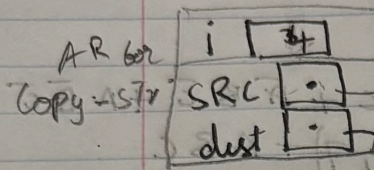 AR for
Copy-str
i
SRC
dest